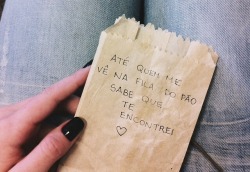 ATÉ QUEM ME
VÊ NA FILA DO PÃO
SABE QUE
TE
ENCONTREI
♡